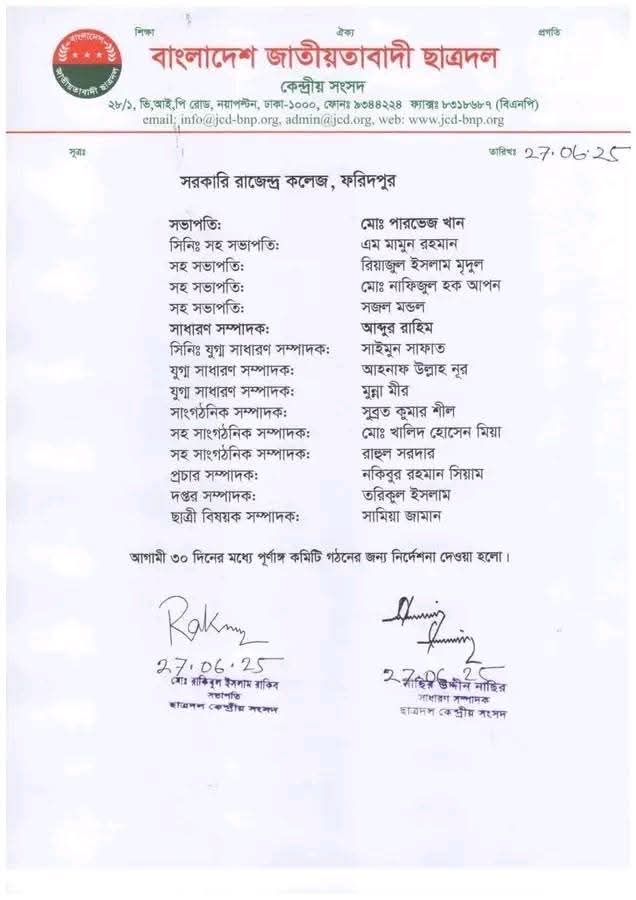 শিক্ষা ঐক্য প্রগতি
বাংলাদেশ জাতীয়তাবাদী ছাত্রদল
কেন্দ্রীয় সংসদ
২৮/১, ভি,আই,পি রোড, নয়াপল্টন, ঢাকা-১০০০, ফোনঃ ৯৩৪৪২২৪ ফ্যাক্সঃ ৮৩১৮৬৮৭ (বিএনপি)
email: info@jcd-bnp.org, admin@jcd.org, web: www.jcd-bnp.org
সূত্রঃ তারিখঃ 27.06.25
সরকারি রাজেন্দ্র কলেজ, ফরিদপুর
সভাপতি: মোঃ পারভেজ খান
সিনিঃ সহ সভাপতি: এম মামুন রহমান
সহ সভাপতি: রিয়াজুল ইসলাম মৃদুল
সহ সভাপতি: মোঃ নাফিজুল হক আপন
সহ সভাপতি: সজল মন্ডল
সাধারণ সম্পাদক: আব্দুর রাহিম
সিনিঃ যুগ্ম সাধারণ সম্পাদক: সাইমুন সাফাত
যুগ্ম সাধারণ সম্পাদক: আহনাফ উল্লাহ নূর
যুগ্ম সাধারণ সম্পাদক: মুন্না মীর
সাংগঠনিক সম্পাদক: সুব্রত কুমার শীল
সহ সাংগঠনিক সম্পাদক: মোঃ খালিদ হোসেন মিয়া
সহ সাংগঠনিক সম্পাদক: রাহুল সরদার
প্রচার সম্পাদক: নকিবুর রহমান সিয়াম
দপ্তর সম্পাদক: তরিকুল ইসলাম
ছাত্রী বিষয়ক সম্পাদক: সামিয়া জামান
আগামী ৩০ দিনের মধ্যে পূর্ণাঙ্গ কমিটি গঠনের জন্য নির্দেশনা দেওয়া হলো।
27.06.25 27.06.25
মোঃ রাকিবুল ইসলাম রাকিব নাছির উদ্দীন নাছির
সভাপতি সাধারণ সম্পাদক
ছাত্রদল কেন্দ্রীয় সংসদ ছাত্রদল কেন্দ্রীয় সংসদ